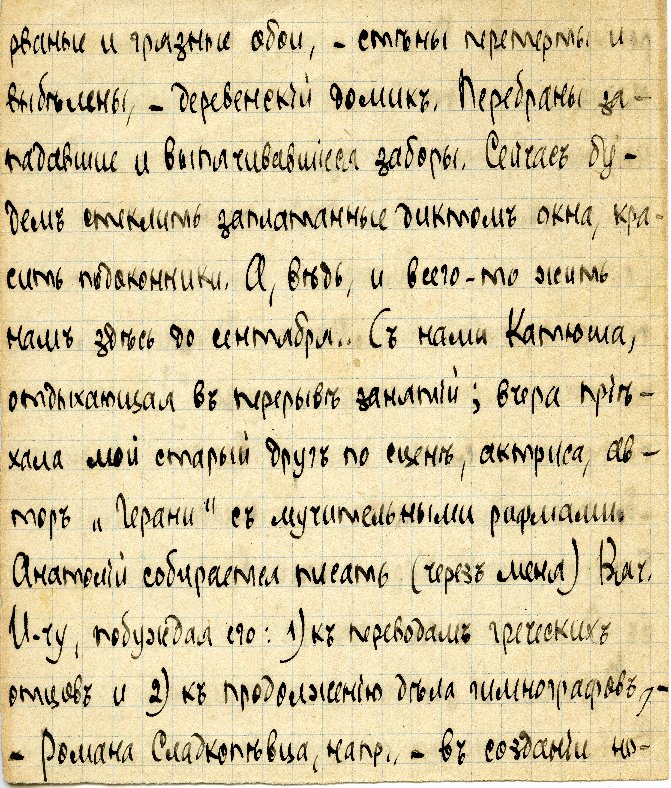 рваные и грязные обои, – стѣны перетерты и
выбѣлены, – деревенскій домикъ. Перебраны за-
падавшие и выпячивавшіеся заборы. Сейчасъ бу-
демъ стеклить заплатанные диктомъ окна, кра-
сить подоконники. А, вѣдь, и всего-то жить
намъ здѣсь до сентября.. Съ нами Катюша,
отдыхающая въ перерывѣ занятій; вчера пріѣ-
хала мой старый другъ по сценѣ, актриса, ав-
торъ „Герани“ съ мучительными рифмами.
Анатолій собирается писать (черезъ меня) Вяч.
И-чу, побуждая его: 1) къ переводамъ греческихъ
отцовъ и 2) къ продолженію дѣла гимнографовъ, –
– Романа Сладкопѣвца, напр., – въ созданіи но-